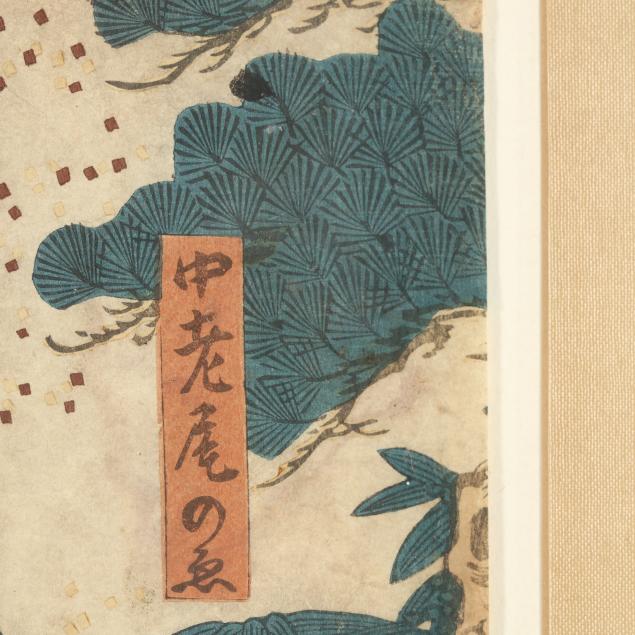 中老尾のゑ